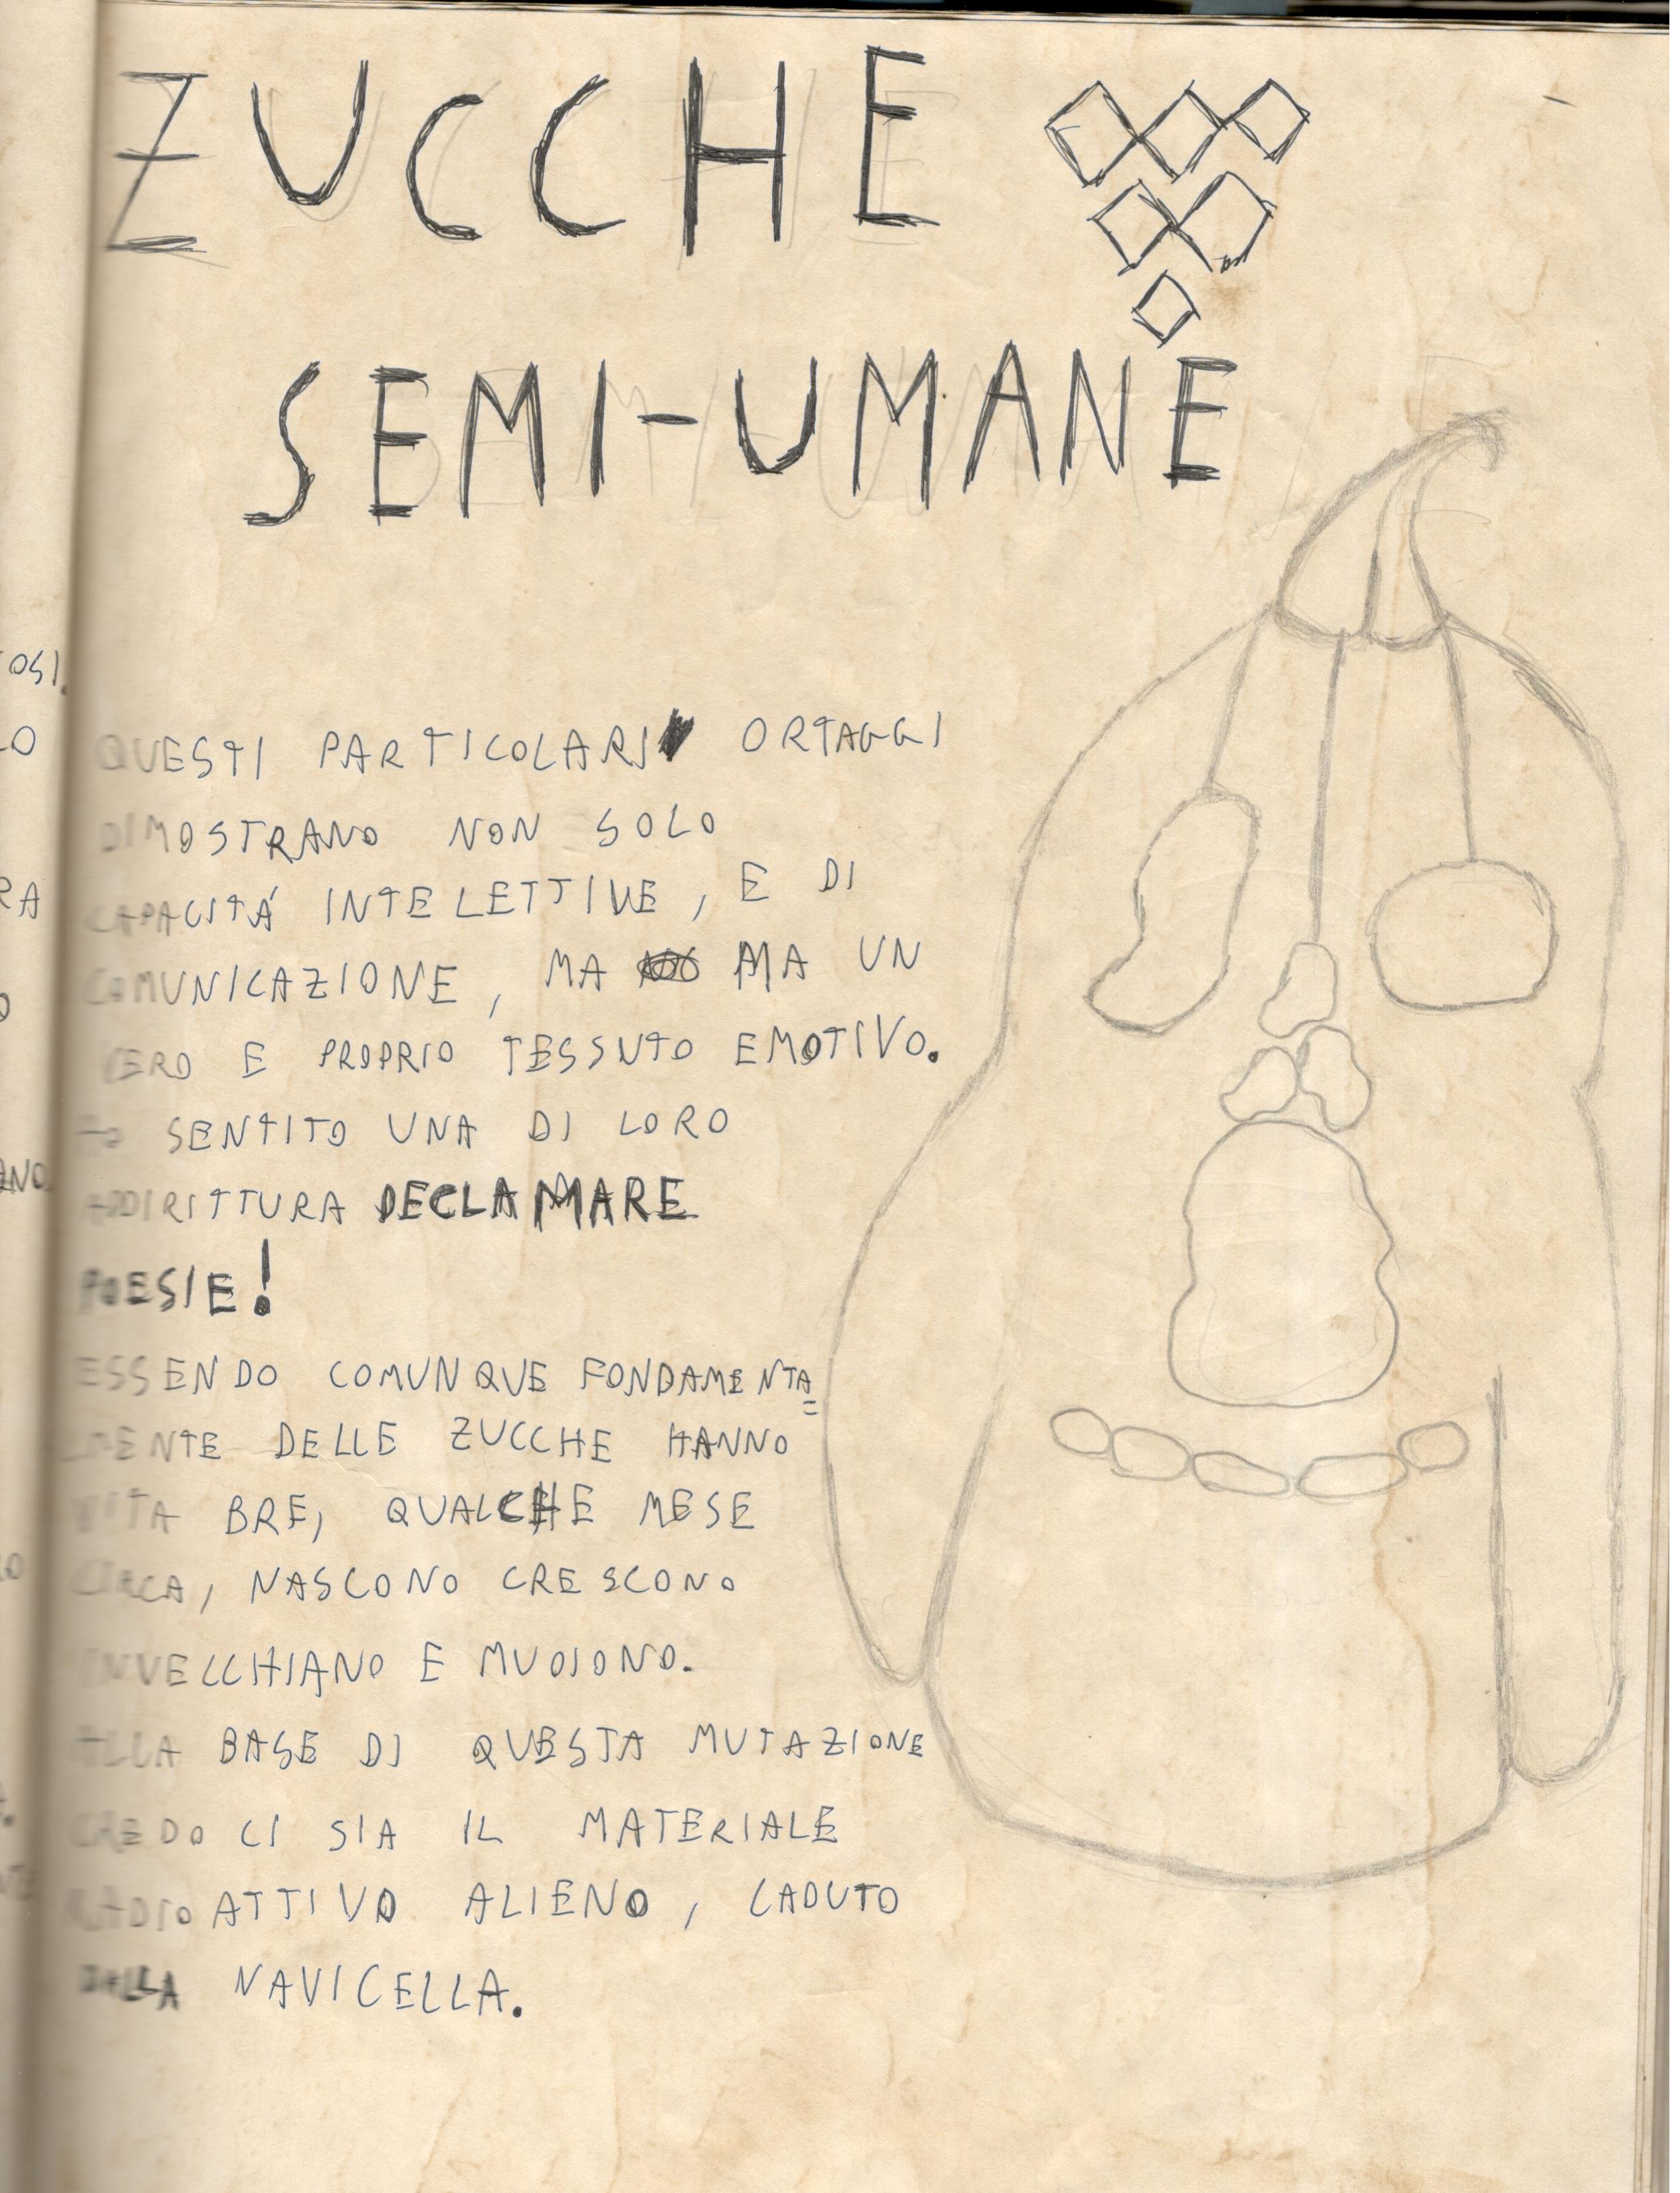 ZUCCHE
SEMI-UMANE
OSI.
LO
RA
O
ANO
QUESTI PARTICOLARI ORTAGGI
DIMOSTRANO NON SOLO
CAPACITÁ INTELETTIVE, E DI
COMUNICAZIONE, MA MA UN
VERO E PROPRIO TESSUTO EMOTIVO.
HO SENTITO UNA DI LORO
ADDIRITTURA DECLAMARE
POESIE!
ESSENDO COMUNQUE FONDAMENTA=
LMENTE DELLE ZUCCHE HANNO
VITA BRE, QUALCHE MESE
CIRCA, NASCONO CRESCONO
INVECCHIANO E MUOIONO.
ALLA BASE DI QUESTA MUTAZIONE
CREDO CI SIA IL MATERIALE
RADIOATTIVO ALIENO, CADUTO
DALLA NAVICELLA.